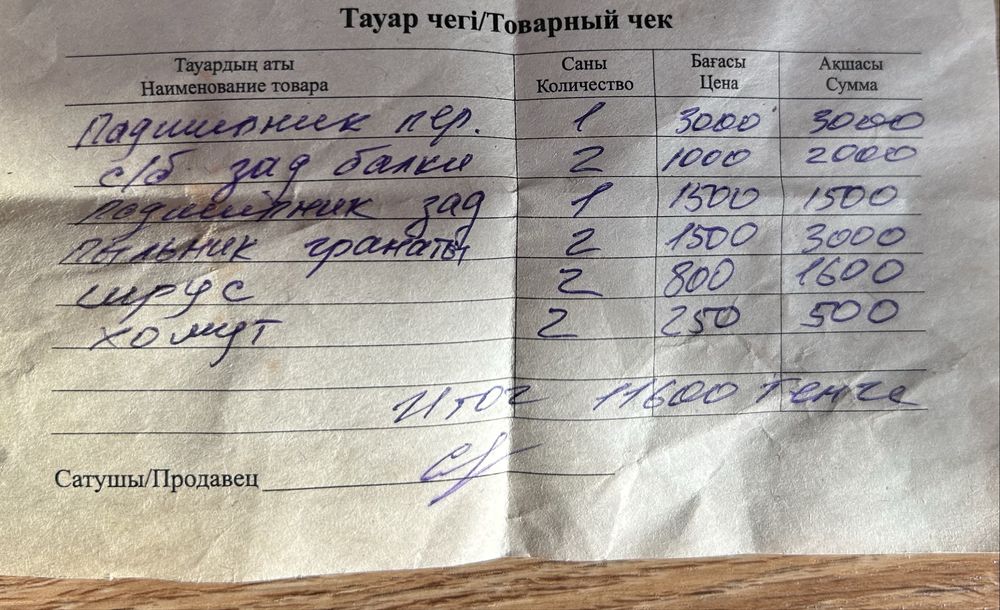 Тауар чегі/Товарный чек
Тауардың аты Саны Бағасы Ақшасы
Наименование товара Количество Цена Сумма
Падшипник пер. 1 3000 3000
с/б зад балки 2 1000 2000
подшипник зад 1 1500 1500
пыльник гранаты 2 1500 3000
шрус 2 800 1600
хомут 2 250 500
Итог 11600 тенге
Сатушы/Продавец